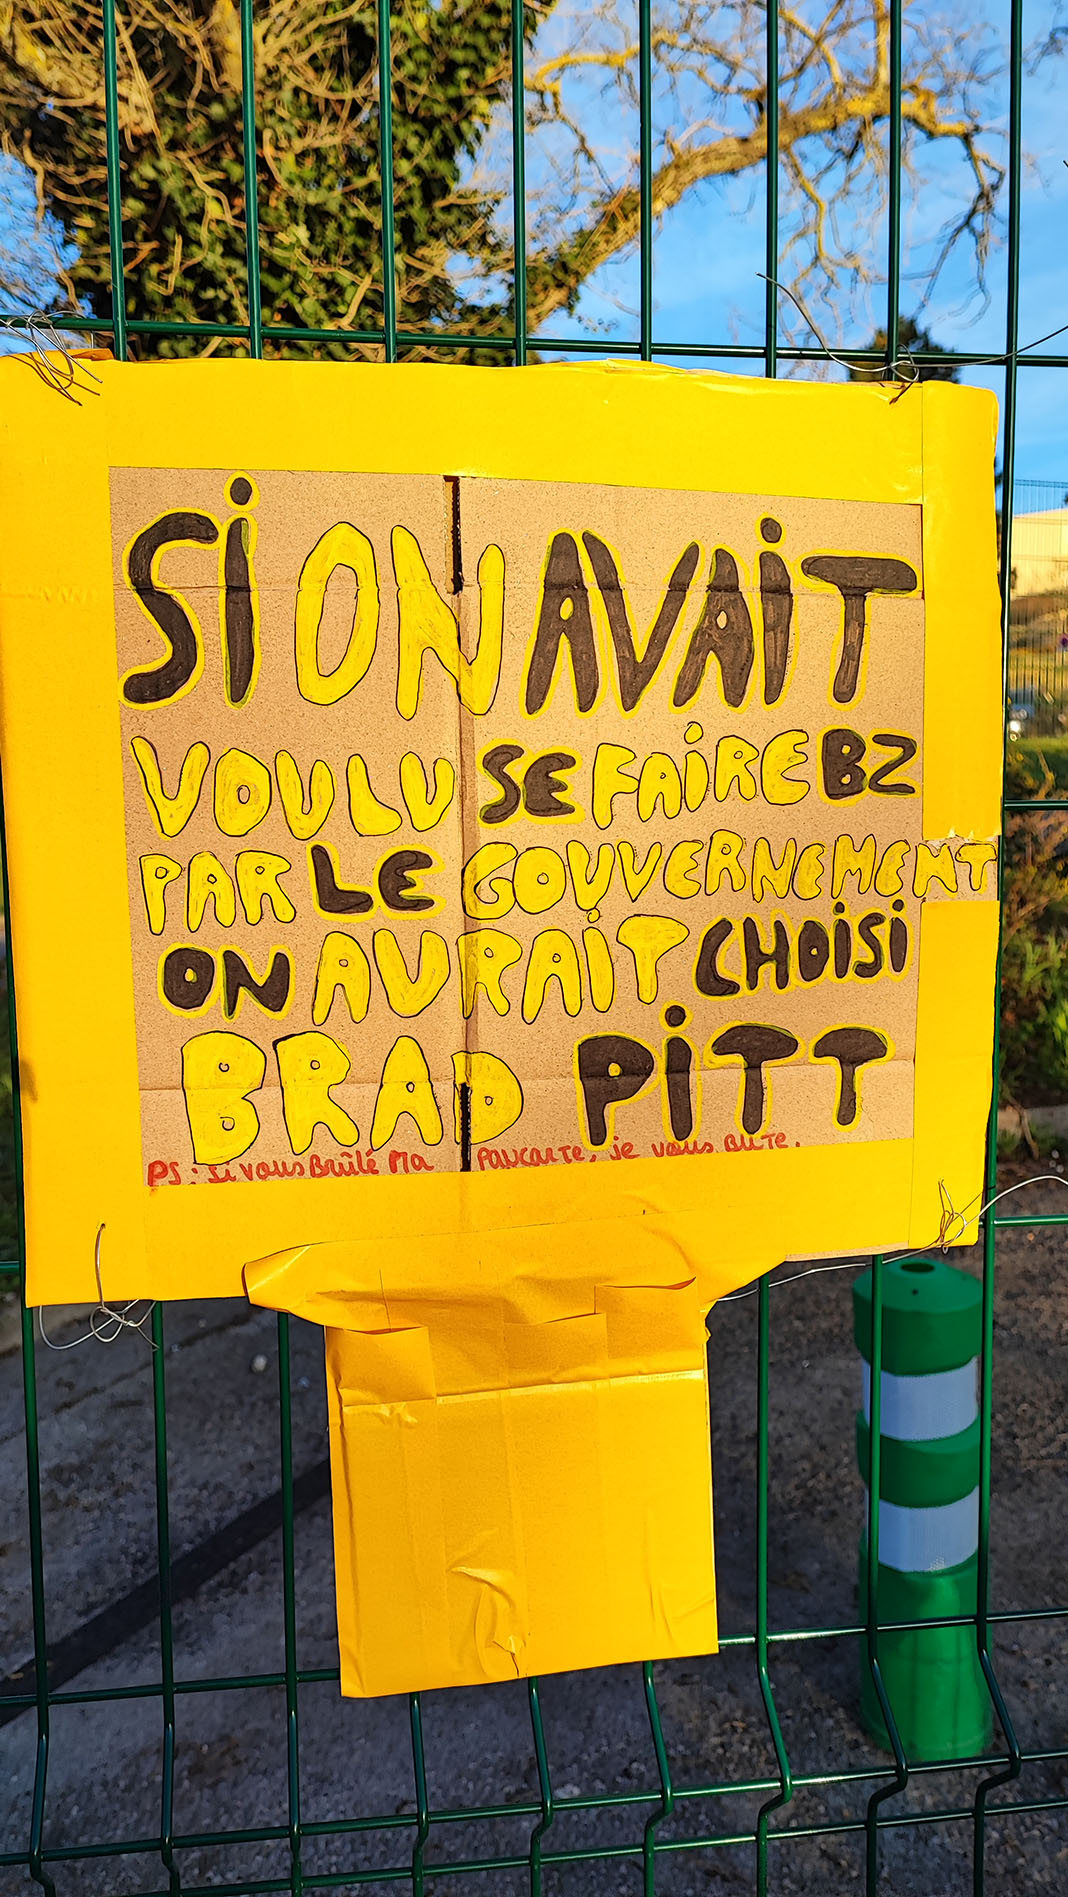 Si ON AVAiT
VOULU SE FAiRE BZ
PAR LE GOUVERNEMENT
ON AURAiT CHOiSi
BRAD PiTT
PS : Si vous Brûlé Ma Pancarte, je vous Bute.